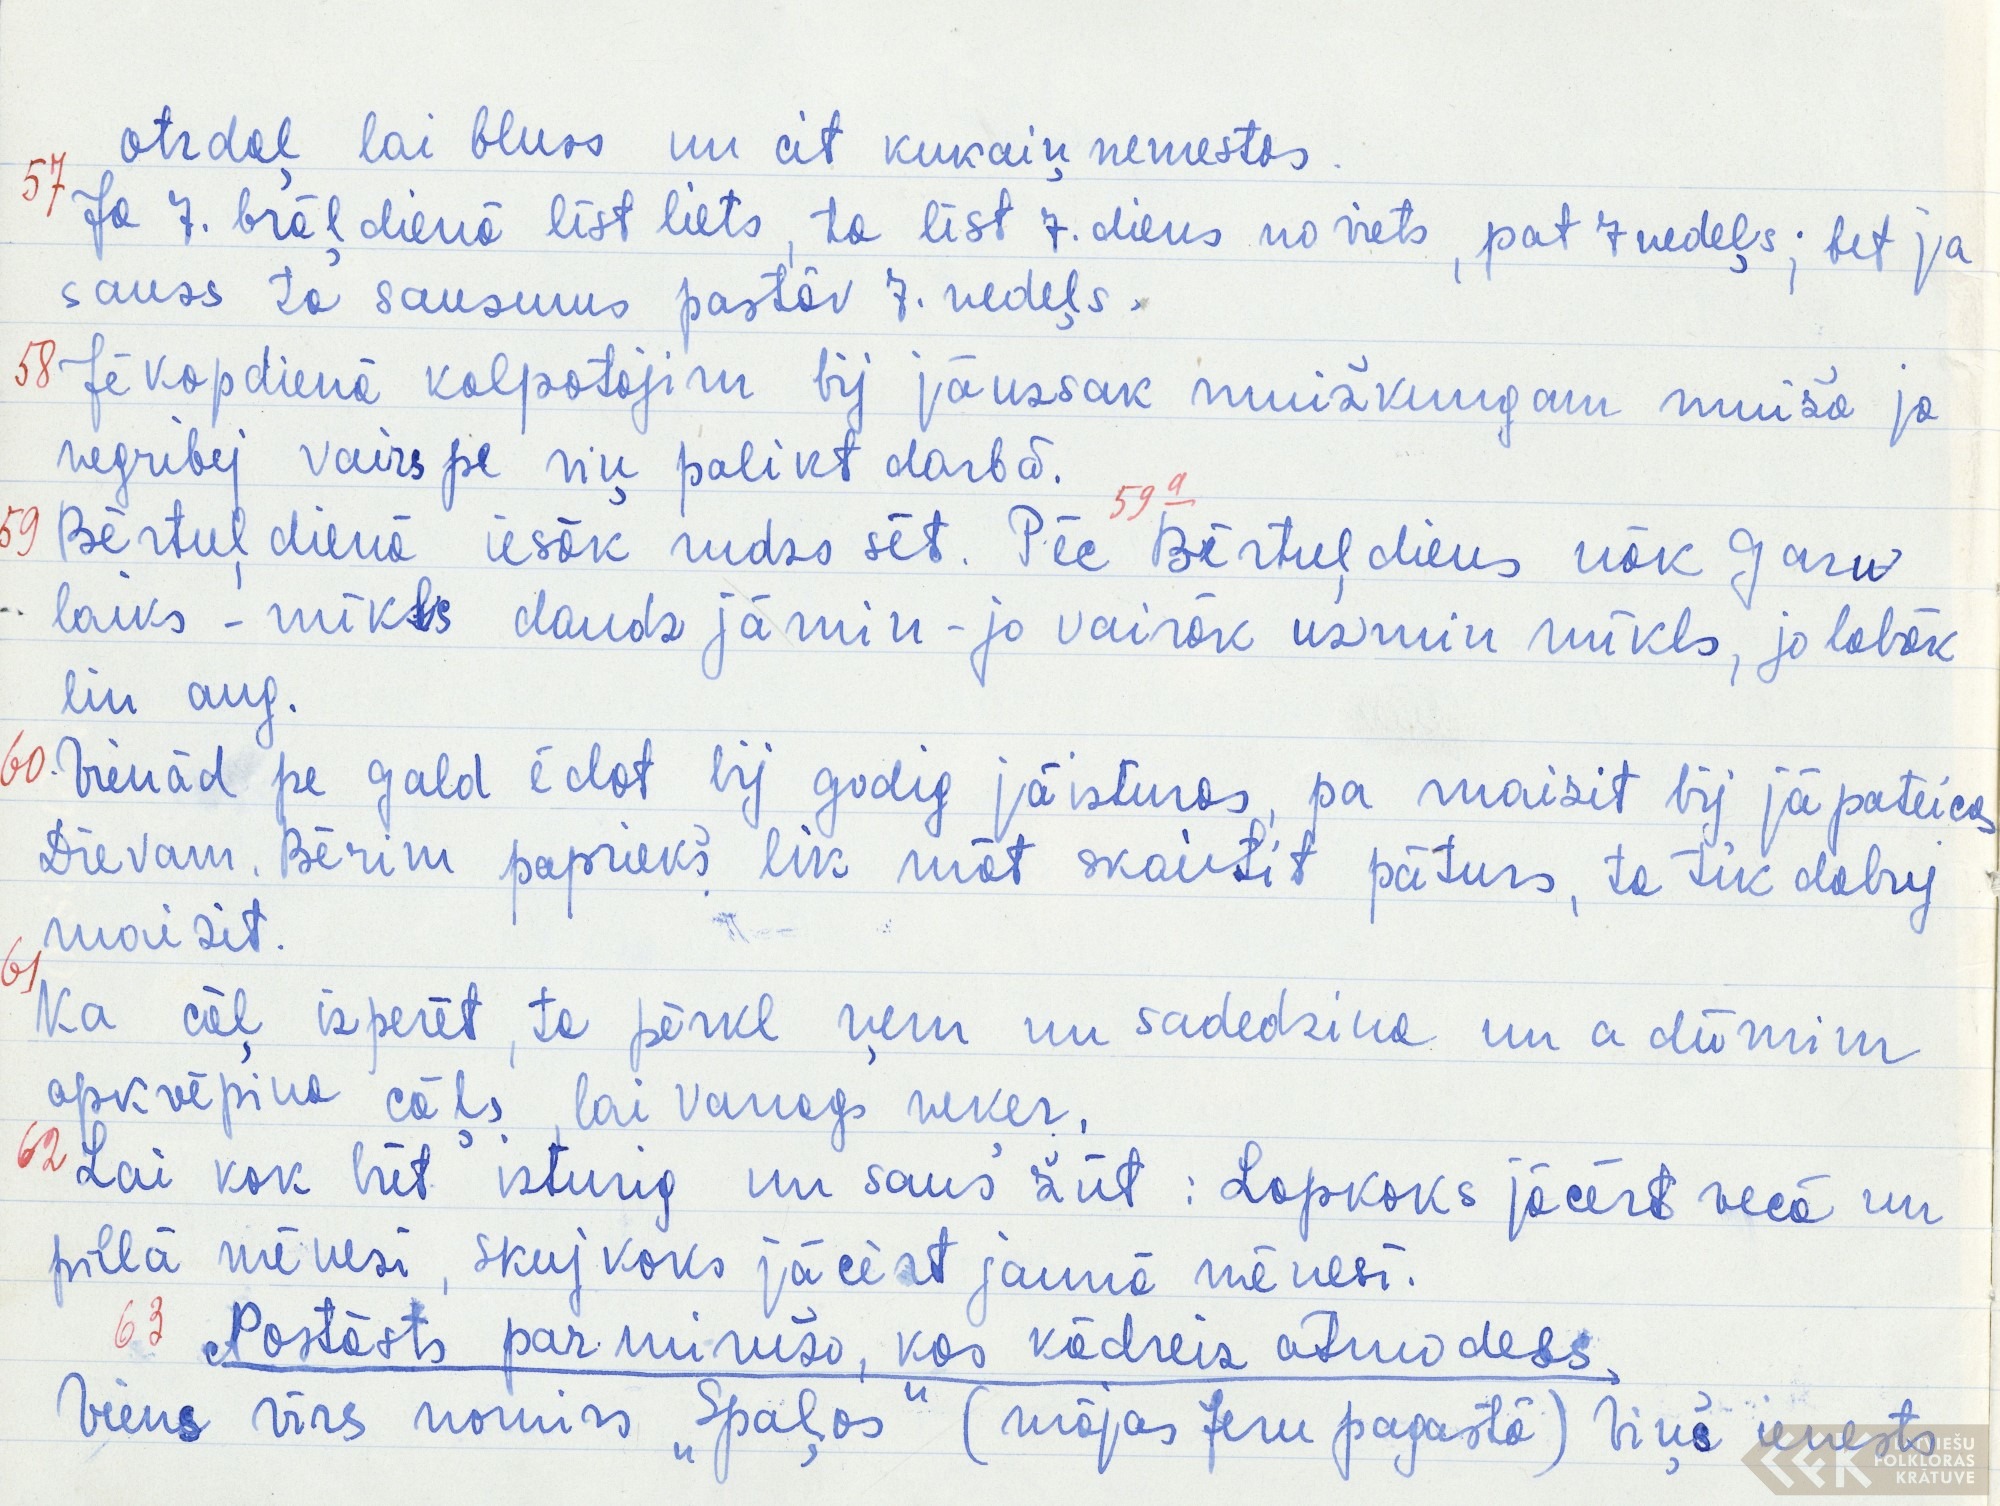 otrdaļ lai bluss un cit kukaiņ nemestos.
57 Ja 7. brāļ dienā līst liets, ta līst 7. diens no viets, pat 7 nedeļs; bet ja
sauss ta sausums pastāv 7. nedeļs.
58 Jēkopdienā kalpotājim bij jāussak muižkungam muižā ja
negribej vairs pe viņ palikt darbā.
59 Bērtuļ dienā iesāk rudzs sēt. Pēc 59a Bērtuļ diens nāk garu
laiks – mīkls daudz jāmin – jo vairāk uzmin mīkls, jo labāk
lin aug.
60. Vienād pe gald ēdot bij godīg jāizturas, pa maizīt bij jāpateicas
Dievam. Bērim papriekš lik māt skaitīt pāturs, ta tik dabuj
maizīt.
61 Ka cāļ izperēt, ta pērkl ņem un sadedzina un a dūmim
apkvēpina cāļs, lai vanags neker.
62 Lai kok būt izturīg un saus žūt: Lapkoks jācērt vecā un
pillā mēnesī, skujkoks jācērt jaunā mēnesī.
63 Nostāsts par mirušo, kas kādreiz atmodess.
Viens vīrs nomirs „Spaļos" (mājas Jeru pagastā) Viņš ienests
LATVIEŠU
FOLKLORAS
KRĀTUVE